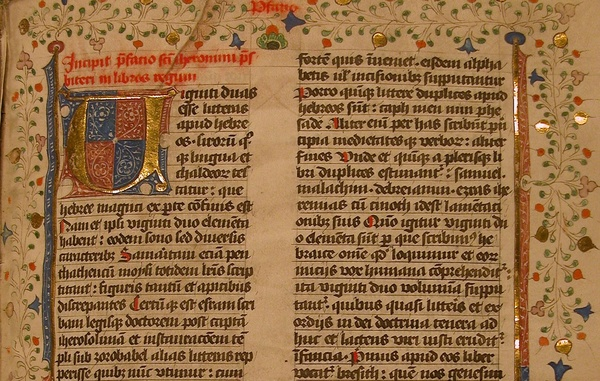 Prefacio
Incipit p̄facio sc̄i iheronimi p̄s
biteri in libros regum
Uiginti duas
esse litteras
apud hebre
os · sirorum q̄
qꝫ lingua et
chaldeoꝝ tes
tatur : que
hebree magna ex ꝑte cōfinis est
Nam et ipsi viginti duo elemēta
habent : eodem sono sed diuersis
caracteribꝫ Samaritani eciam pen
thateucū moysi totidem lr̄is scrip
titant : figuris tantū et apicibus
discrepantes Certūqꝫ est esdram scri
bam legisqꝫ doctorem post captā
iherosolimā et instauracōem tē
pli sub zorobabel alias litteras rep
perisse quibꝫ nūc vtimur : cum
fortē quis īueniet · eisdem alpha
betis ul' incisionibꝫ supputantur
Porro quinqꝫ littere duplices apud
hebreos sūt : caph mem nun phe
sade · Aliter eni per has scribūt pn
cipia medietates qꝫ verboꝝ : aliter
fines Vnde et quinqꝫ a plerisqꝫ li
bri duplices estimant' : samuel ·
malachim · dabreiamin · ezras ihe
remias cū cinoth idest lamentaci
onibꝫ suis Quō igitur viginti du
o elementa sūt ꝑ que scribimꝰ he
braice omne qd' loquimur et eor
inicijs vox humana cōprehendit'
ita viginti duo volumina suppu
tant' · quibus quasi litteris et ex
ordijs in dei doctrina tenera ad
huc et lactens viri iusti erudit'
īfancia · Primus apud eos liber
vocat' bresith : que nos